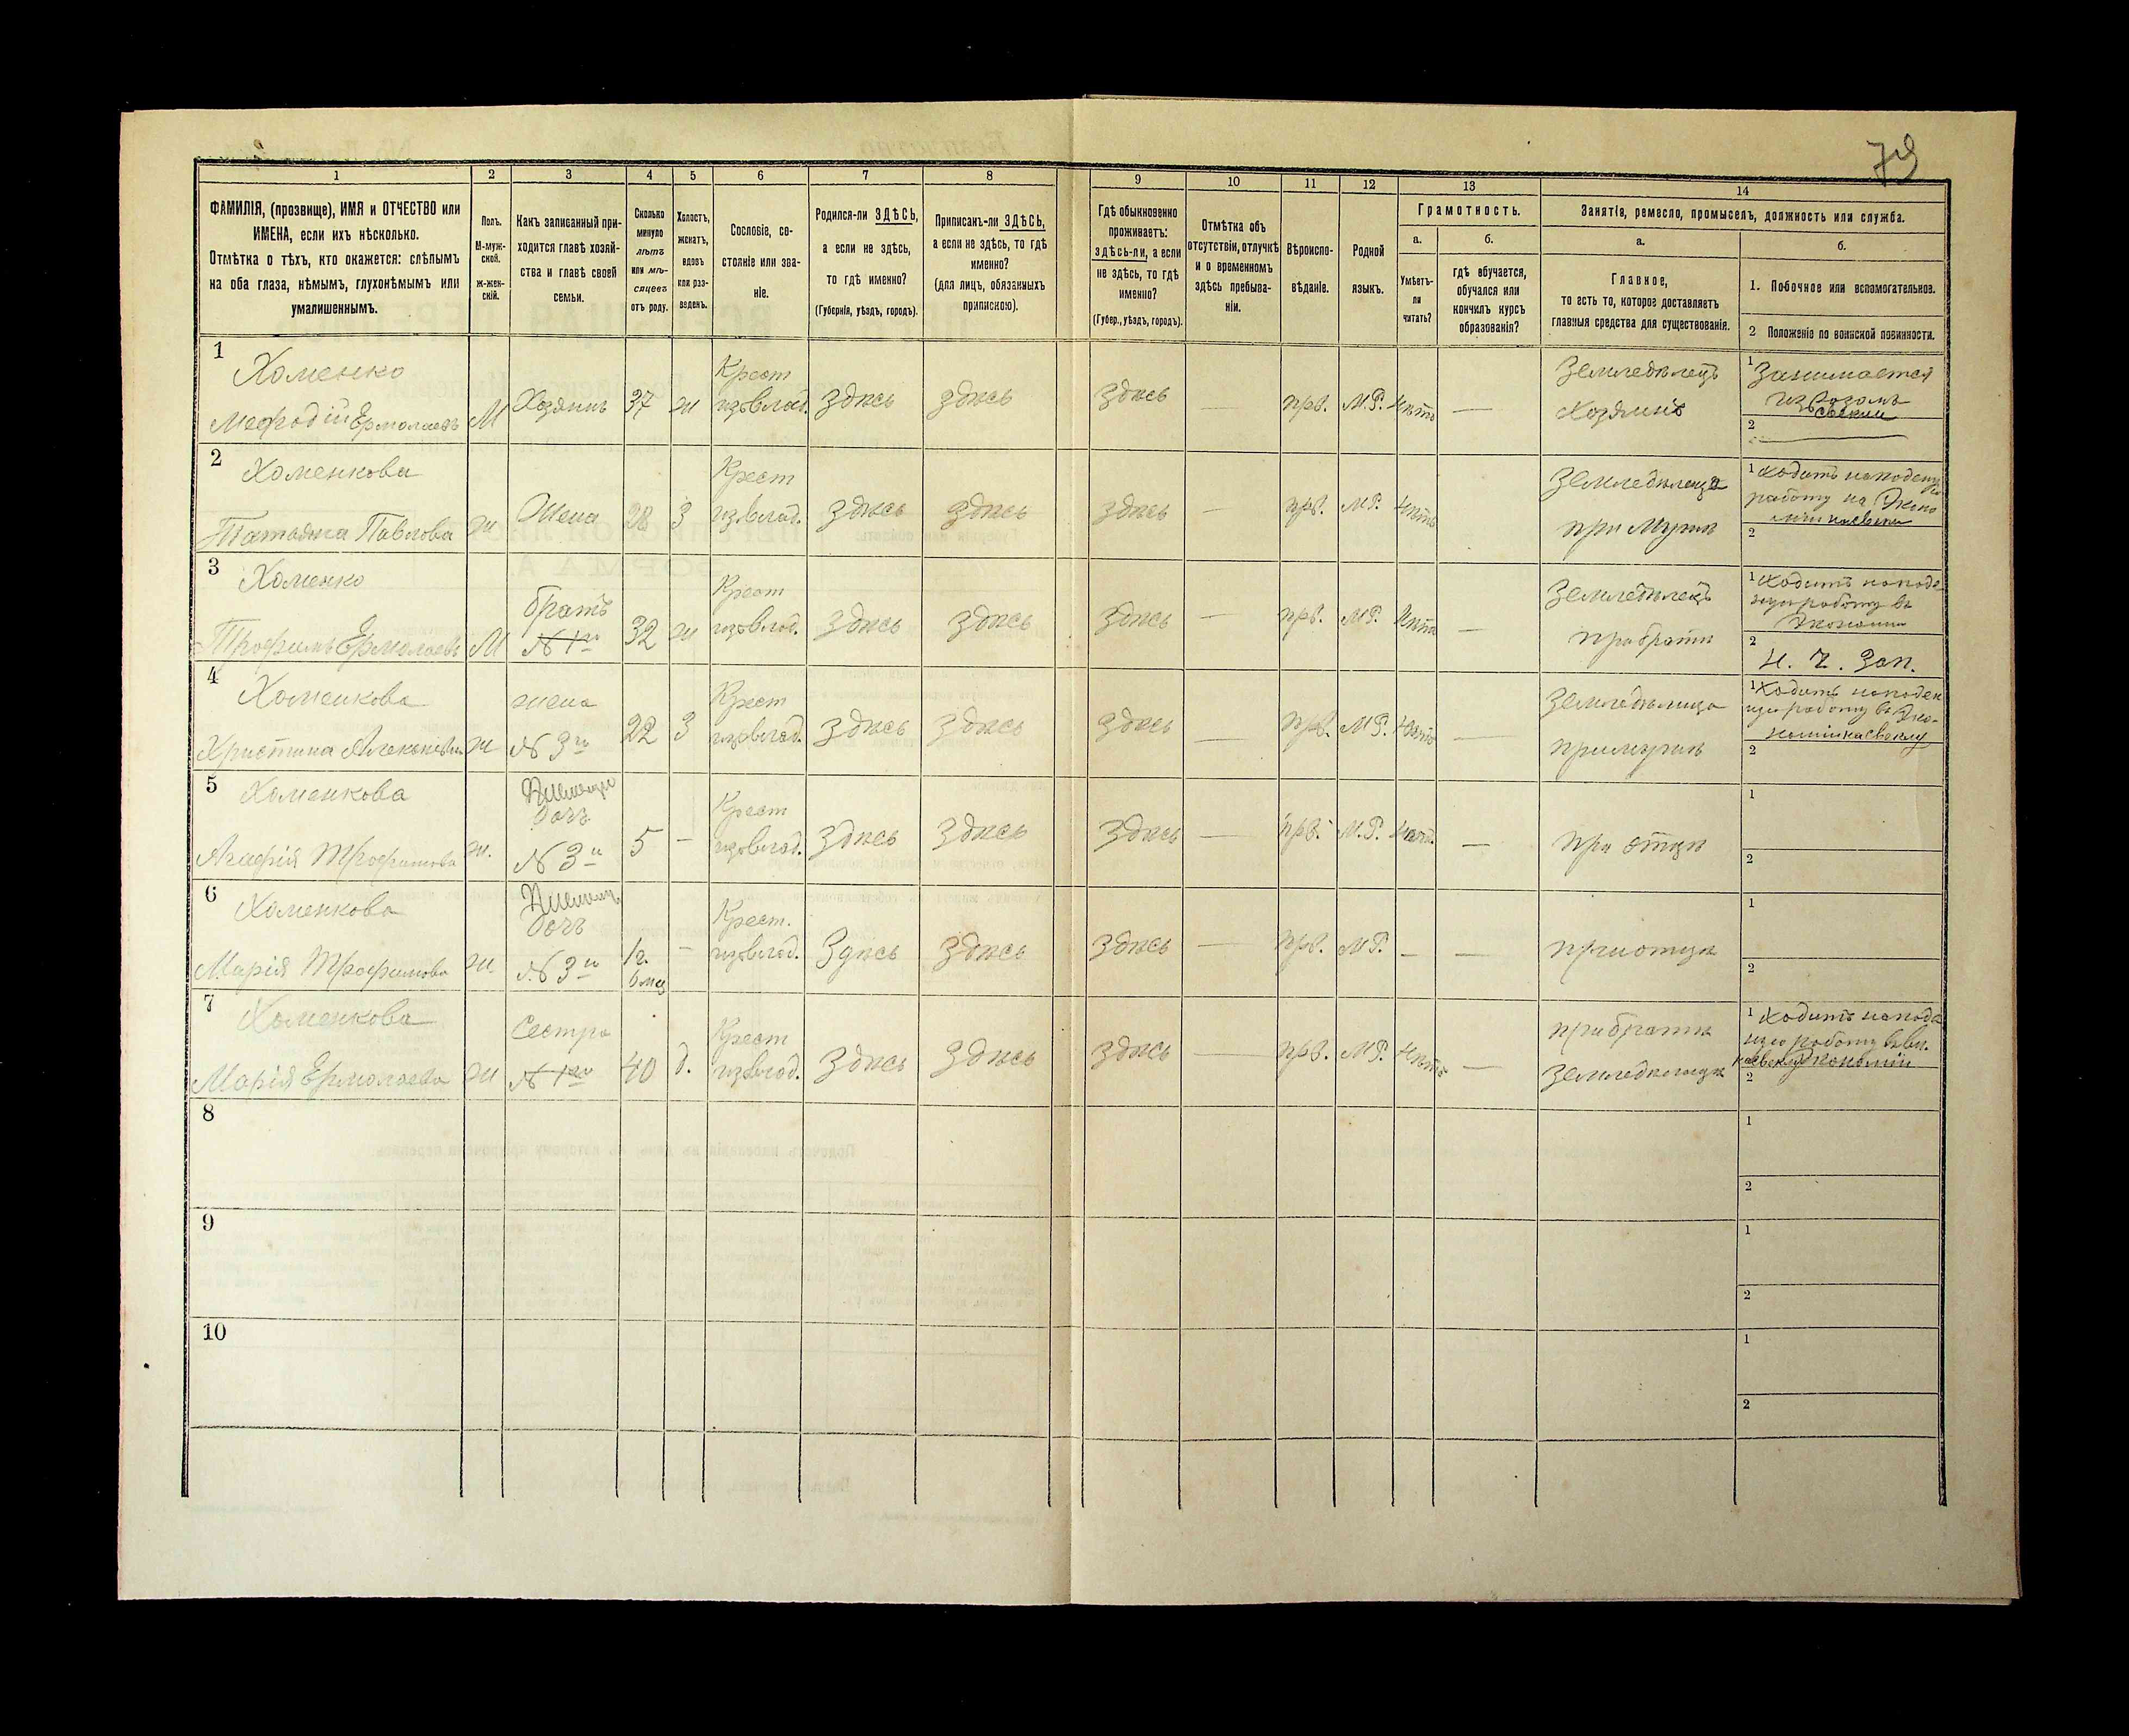 79
1 2 3 4 5 6 7 8 9 10 11 12 13 14
ФАМИЛІЯ, (прозвище), ИМЯ и ОТЧЕСТВО или
ИМЕНА, если ихъ нѣсколько.
Отмѣтка о тѣхъ, кто окажется: слѣпымъ
на оба глаза, нѣмымъ, глухонѣмымъ или
умалишеннымъ.
Полъ.
М-муж-
ской.
Ж-жен-
скій.
Какъ записанный при-
ходится главѣ хозяй-
ства и главѣ своей
семьи.
Сколько
минуло
лѣтъ
или мѣ-
сяцевъ
отъ роду.
Холостъ,
женатъ,
вдовъ
или раз-
веденъ.
Сословіе, со-
стояніе или зва-
ніе.
Родился-ли ЗДѢСЬ,
а если не здѣсь,
то гдѣ именно?
(Губернія, уѣздъ, городъ).
Приписанъ-ли ЗДѢСЬ,
а если не здѣсь, то гдѣ
именно?
(для лицъ, обязанныхъ
припискою).
Гдѣ обыкновенно
проживаетъ:
здѣсь-ли, а если
не здѣсь, то гдѣ
именно?
(Губер., уѣздъ, городъ).
Отмѣтка объ
отсутствіи, отлучкѣ
и о временномъ
здѣсь пребыва-
ніи.
Вѣроиспо-
вѣданіе.
Родной
языкъ.
Грамотность.
а.
Умѣетъ-
ли
читать?
б.
гдѣ обучается,
обучался или
кончилъ курсъ
образованія?
Занятіе, ремесло, промыселъ, должность или служба.
а.
Главное,
то есть то, которое доставляетъ
главныя средства для существованія.
б.
1. Побочное или вспомогательное.
2 Положеніе по воинской повинности.
1
Хоменко
Мефодій Ермолаевъ М Хозяинъ 37 ж
Крест
изъ влад. здѣсь здѣсь здѣсь — прв. М.Р. Нѣтъ —
Земледѣлецъ
Хозяинъ
1 Занимается
извозомъ
2
2
Хоменкова
Татьяна Павлова ж Жена 28 З
Крест
изъ влад. здѣсь здѣсь здѣсь — прв. М.Р. Нѣтъ
Земледѣлица
при Мужѣ
1 Ходитъ на поден
работу
2
3
Хоменко
Трофимъ Ермолаевъ М
братъ
№ 1го 32 ж
Крест
изъ влад. здѣсь здѣсь здѣсь — прв. М.Р. Нѣтъ —
Земледѣлецъ
при братѣ
1 Ходитъ на поде
ную работу въ
Экономіи
2
Н. Ч. Зап.
4
Хоменкова
Христина ж
жена
№ 3го 22 З
Крест
изъ влад. здѣсь здѣсь здѣсь — прв. М.Р. Нѣтъ —
Земледѣлица
при мужѣ
1 Ходитъ на поден
ную работу въ Эко-
2
5
Хоменкова
Агафія Трофимова ж.
дочь
№ 3го 5 —
Крест
изъ влад. здѣсь здѣсь здѣсь — прв. М.Р. —
при отцѣ
1
2
6
Хоменкова
Марія Трофимова ж.
дочь
№ 3го 1г. 6 мц —
Крест.
изъ влад. Здѣсь здѣсь здѣсь — прв. М.Р. — —
при отцѣ
1
2
7
Хоменкова
Марія Ермолаева ж
Сестра
№ 1го 40 д.
Крест
изъ влад. здѣсь здѣсь здѣсь — прв. М.Р. Нѣтъ —
при братѣ
Земледѣлица
1 Ходитъ на поде
ную работу
экономіи
2
8
1
2
9
1
2
10
1
2